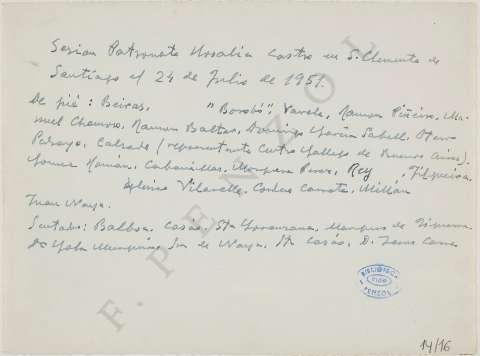 Sesion Patronato Rosalia Castro en S. Clemente de
Santiago el 24 de Julio de 1951.
De pié: Beiras, "Borobó", Varela, Ramon Piñeiro, Ma-
nuel Chamoso, Ramon Baltar, Domingo Garcia Sabell, Otero
Pedrayo, Calzado (representante Centro Gallego de Buenos Aires).
Gomez Román, Cabanillas, Mosquera Perez, Rey , Filgueira.
Iglesias Vilarelle, Millán
Juan Naya.
Sentados: Balboa, Casás, Sta , Marques de Figueroa
de Naya, Sta Casás, D.
F. PENZOL
BIBLIOTECA
VIGO
F. PENZOL
14/16